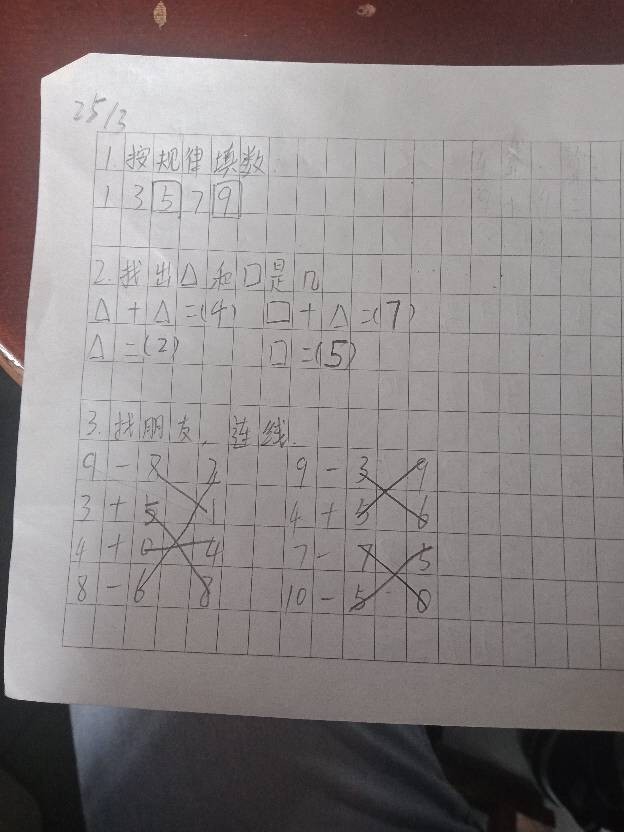 25/3
1. 按规律填数.
1 3 5 7 9
2. 找出△和□是几
△ + △ =(4) □ + △ =(7)
△ =(2) □ =(5)
3. 找朋友, 连线.
9 - 8 2 9 - 3 9
3 + 5 1 4 + 5 6
4 + 0 4 7 - 7 5
8 - 6 8 10 - 5 0